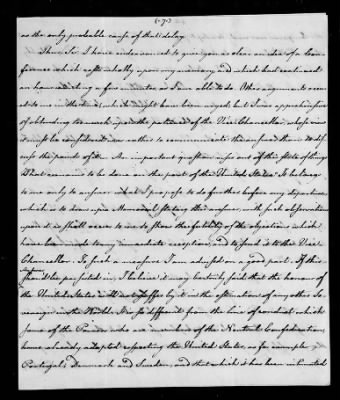 (7)
as the only probable cause of that delay.
Thus, Sir, I have endeavoured to give you as clear an idea of a Con-
ference which rests wholly upon my memory, and which had continued
an hour a few minutes as I am able to do. Other arguments occur'd
to me in the time, which might have been urged, but I was apprehensive
of obtruding too much upon the patience of the Vice Chancellor, whose view
it must be considered was rather to communicate the answer than to dis-
cuss the points of it. An important question rises out of this state of things
What remained to be done on the part of the United States? It belongs
to me only to answer what I propose to do further before my departure,
which is to draw up a Memorial stating this answer, with such observations
upon it as shall occur to me to show the futility of the objections which
have been made to my immediate reception, and to send it to the Vice
Chancellor. To such a measure I am advised on a good part. If this
should be persisted in, I believe it may be truly said that the honour of
the United States will not suffer by it in the estimation of any other So-
vereign in the World. It is so different from the line of conduct which
some of the Powers who are members of the Neutral Confederation,
have already adopted respecting the United States, as for example
Portugal, Denmark and Sweden, and that which it has been intimated